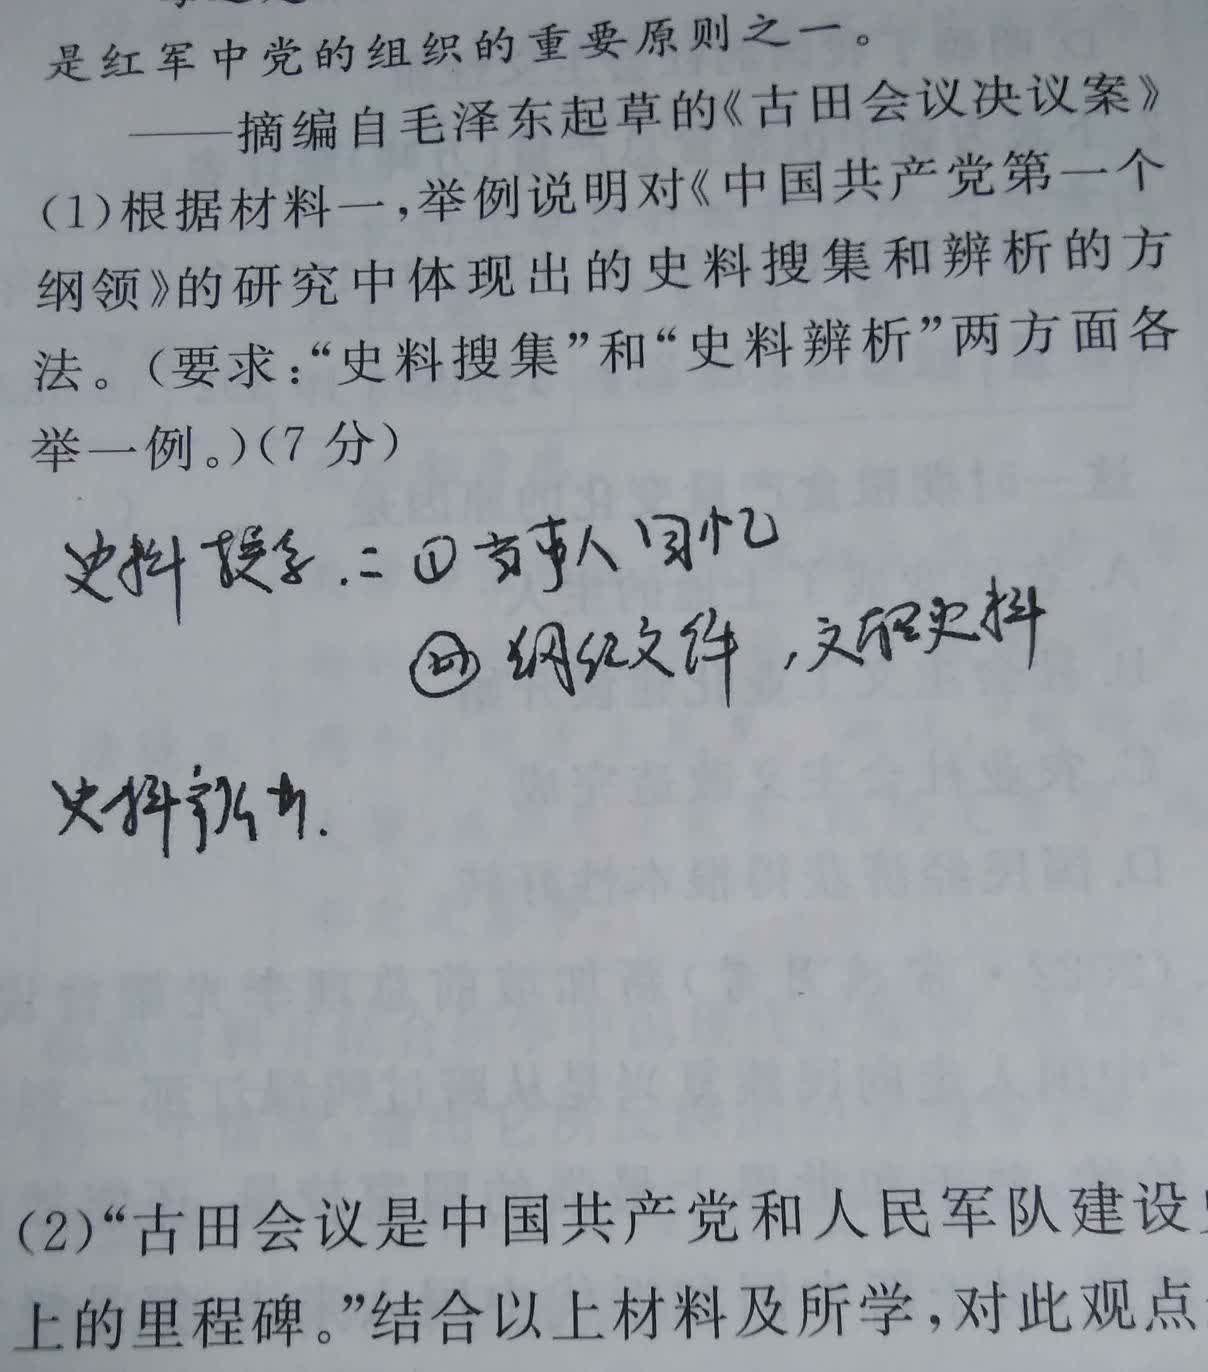 是红军中党的组织的重要原则之一。
——摘编自毛泽东起草的《古田会议决议案》
(1)根据材料一,举例说明对《中国共产党第一个
纲领》的研究中体现出的史料搜集和辨析的方
法。(要求:“史料搜集”和“史料辨析”两方面各
举一例。)(7分)
史料搜集:①当事人回忆
② 纲纪文件,文献史料
史料辨析.
(2)“古田会议是中国共产党和人民军队建设
上的里程碑。”结合以上材料及所学,对此观点